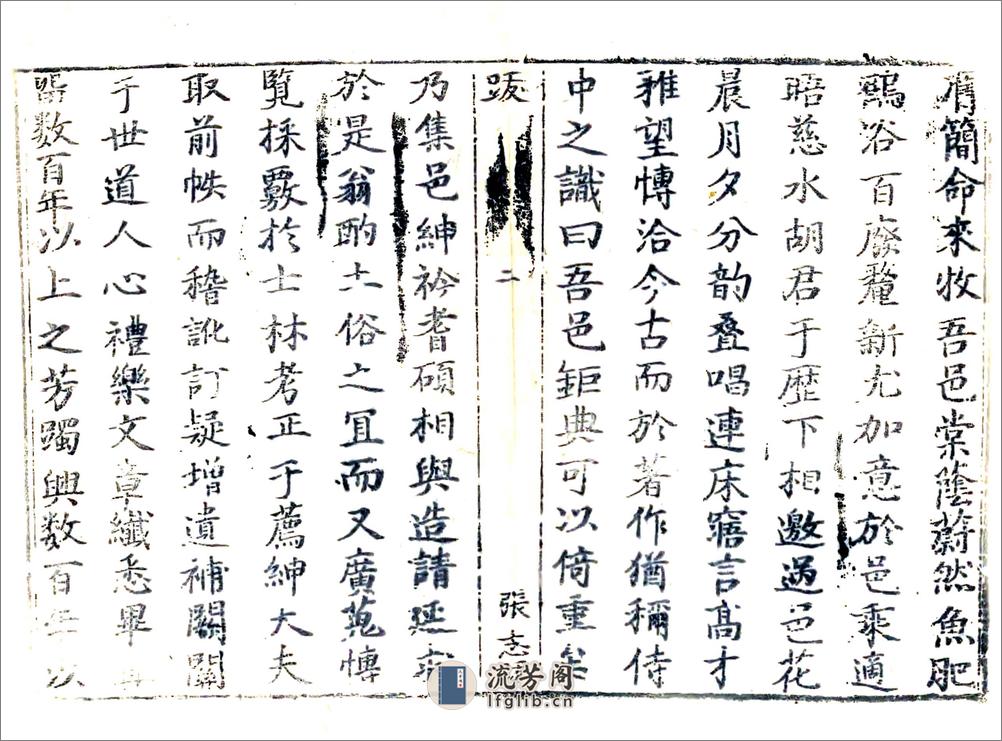 膺簡命來牧吾邑棠蔭蔚然魚肥
浴百廢釐新尤加意於邑乘適
晤慈水胡君于歷下相邀過邑花
晨月夕分韵叠唱連床寤言髙才
雅望博洽今古而於著作猶稱侍
中之識曰吾邑鉅典可以倚重
跋
二
張志
乃集邑紳衿耆碩相與造請延
於是翁酌土俗之冝而又廣蒐博
覽採覈於士林考正于薦紳大夫
取前帙而稽訛訂疑增遺補闕關
于世道人心禮樂文章纖悉畢
數百年以上之芳躅與数百年以
流芳阁
lfglib.cn